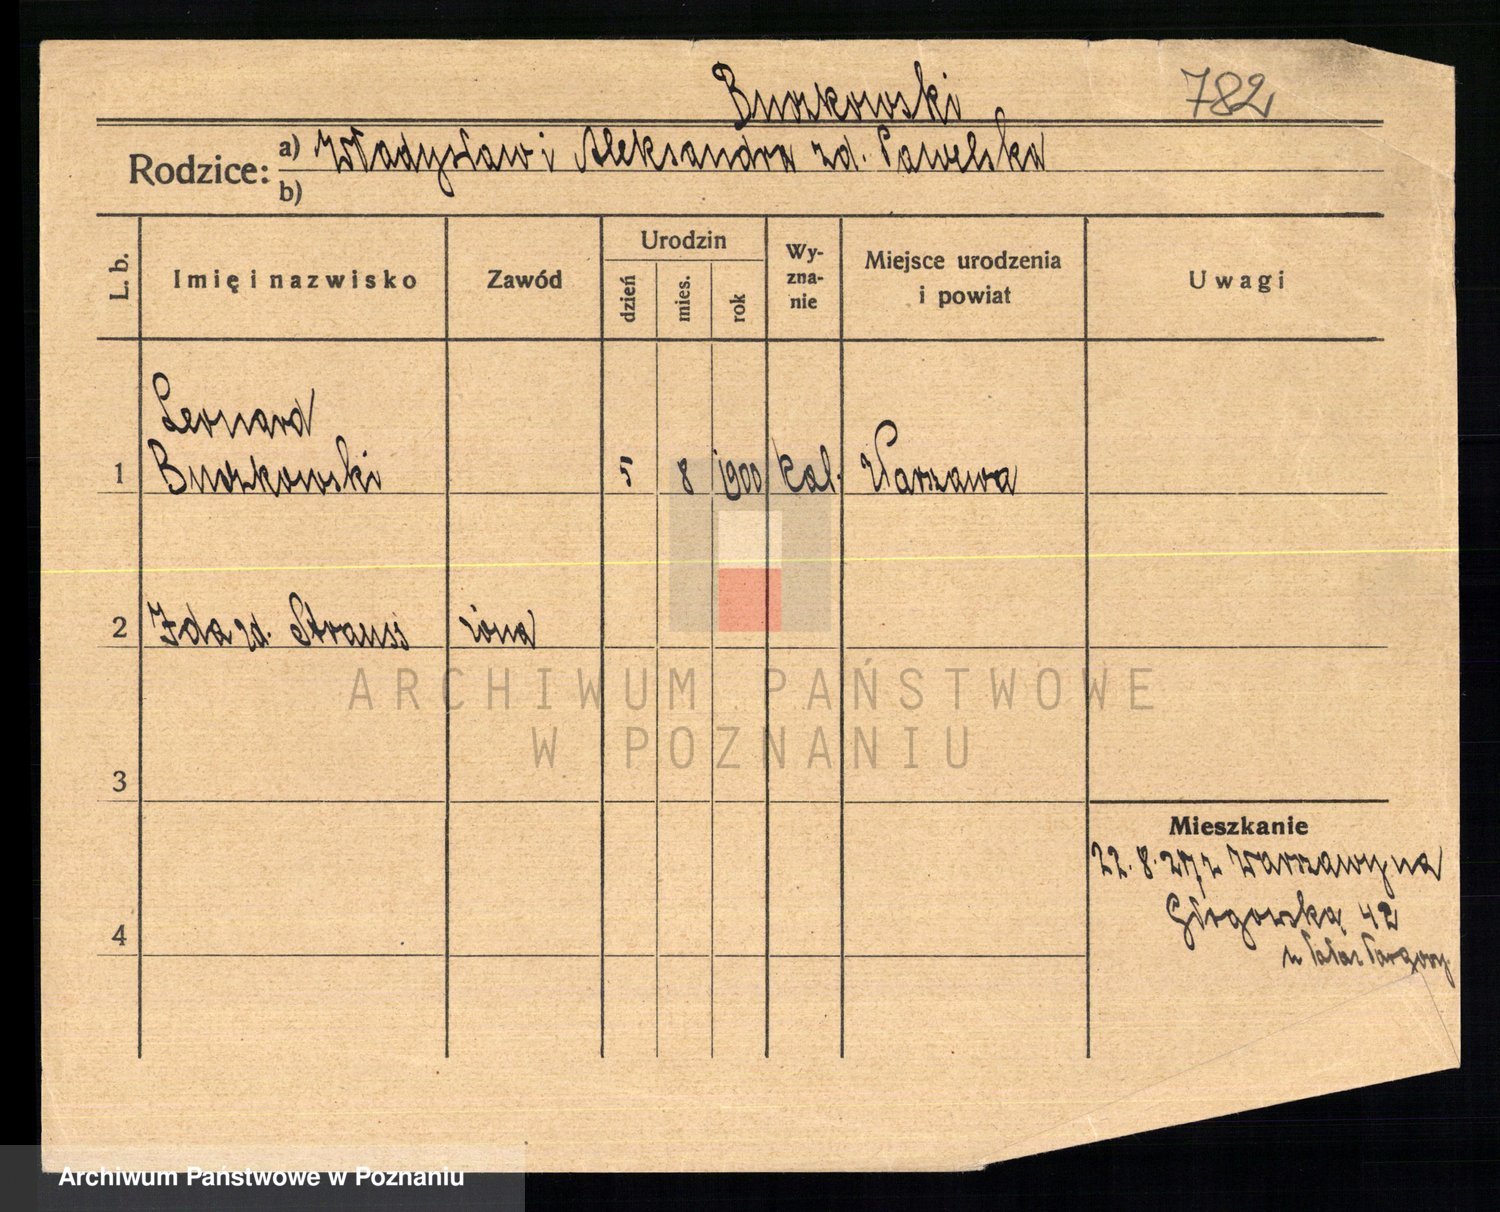 Buszkowski
782
Rodzice:
a) Władysław i Aleksandra zd. Pawelska
b)
L. b.
Imię i nazwisko
Zawód
Urodzin
dzień
mies.
rok
Wy-
zna-
nie
Miejsce urodzenia
i powiat
Uwagi
Leonard
1 Buszkowski 5 8 1900 kat. Warszawa
2 Ida zd. Strauss żona
3
4
Mieszkanie
22.8.27 z Warszawy na
Głogowską 42
ARCHIWUM PAŃSTWOWE
W POZNANIU
Archiwum Państwowe w Poznaniu